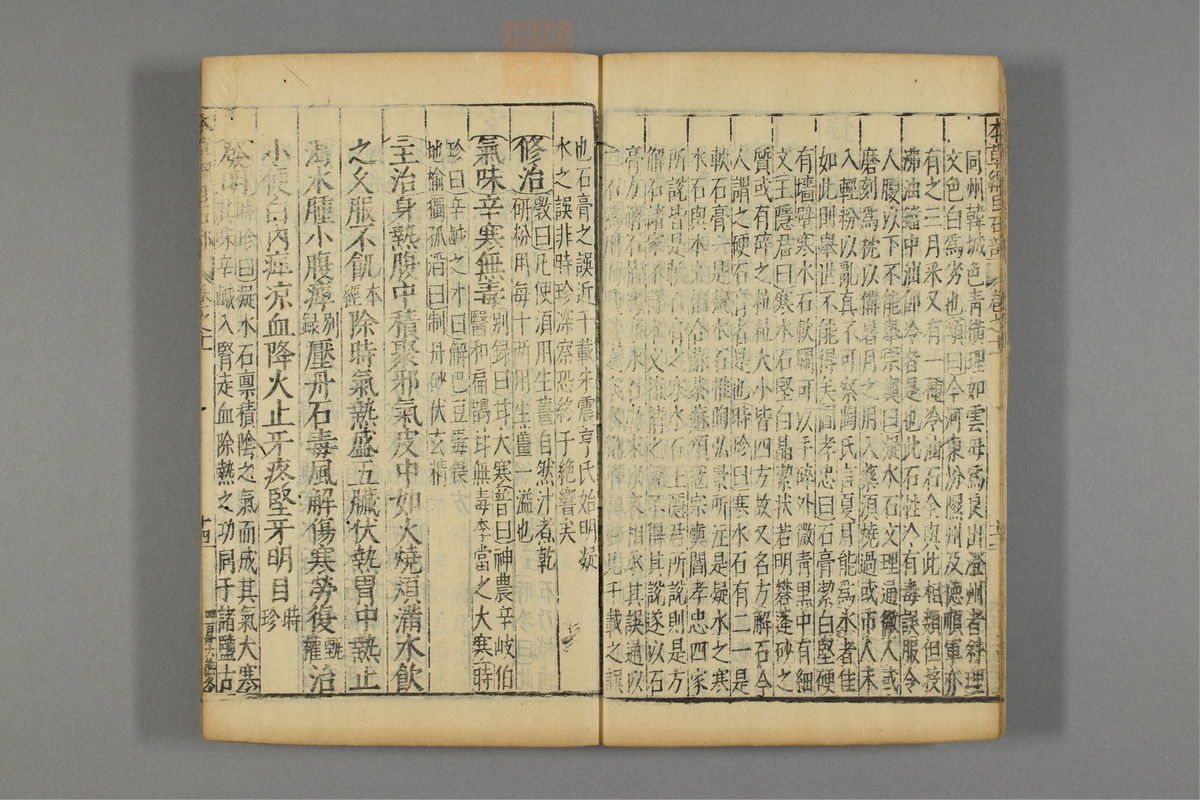 同州韓城色青橫理如雲母爲良出澄州者斜理
文色白爲劣也頌曰今河東汾隰州及德順軍亦
有之三月采又有一種冷油石全與此相類但投
沸油鐺中油卽冷者是也此石性冷有毒誤服令
人腰以下不能舉宗奭曰凝水石文理通徹人或
磨刻爲枕以備暑月之用入藥須燒過或市人末
入輕粉以亂真不可不察陶氏言夏月能爲冰者佳
如此則舉世不能得矣閻孝忠曰石膏潔白堅硬
有墻壁寒水石軟爛可以手碎外微青黑中有細
文王隱君曰寒水石堅白晶潔狀若明礬蓬砂之
質或有碎之粒粒大小皆四方故又名方解石今
人謂之硬石膏者是也時珍曰寒水石有二一是
軟石膏一是凝水石惟陶弘景所注是凝水之寒
水石與本文相合蘇恭蘇頌寇宗奭閻孝忠四家
所說皆是軟石膏之寒水石王隱君所說則是方
解石諸家不詳本文又惟諸之說不得其說遂以石
也石膏之誤近千載朱震亨氏始明凝
水之誤非時珍深察恐終于絶響矣
修治 斆曰凡使須用生薑自然汁煮乾
研粉用每十兩用生薑一溢也
氣味辛寒無毒 別錄曰甘大寒普曰神農辛岐伯
醫和扁鵲甘無毒李當之大寒時
珍曰辛鹹之才曰解巴豆毒畏
地榆獨孤滔曰制丹砂伏玄精
主治身熱腹中積聚邪氣皮中如火燒煩滿水飲
之久服不飢本經除時氣熱盛五臟伏熱胃中熱止
渴水腫小腹痺別錄壓丹石毒風解傷寒勞復甄權治
小便白內痺涼血降火止牙疼堅牙明目時珍
發明 時珍曰凝水石稟積陰之氣而成其氣大寒
其味辛鹹入腎走血除熱之功同于諸鹽古